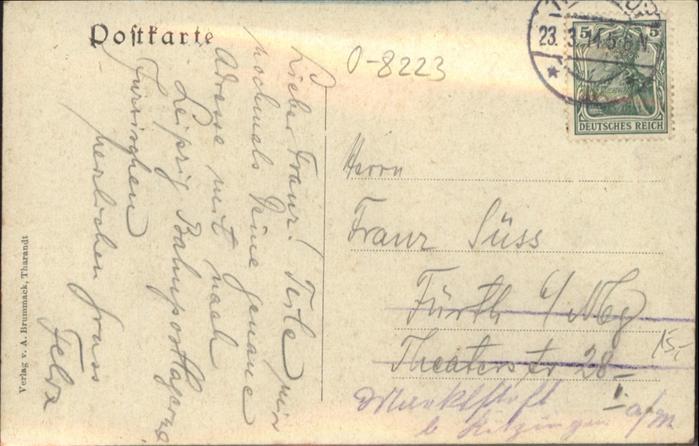 Postkarte
0-8223
23.3.14.5-6N
5 5
DEUTSCHES REICH
Lieber Franz! Teile mir
nochmals Deine genaue
Adresse mit nach
Leipzig Bahnpostlagernd
Inzwischen
herzlichen Gruss
Felix
Herrn
Franz Süss
Fürth i/Bay
Theaterstr 28
15,-
Marktsteft
b Kitzingen a/M
Verlag v. A. Brummack, Tharandt